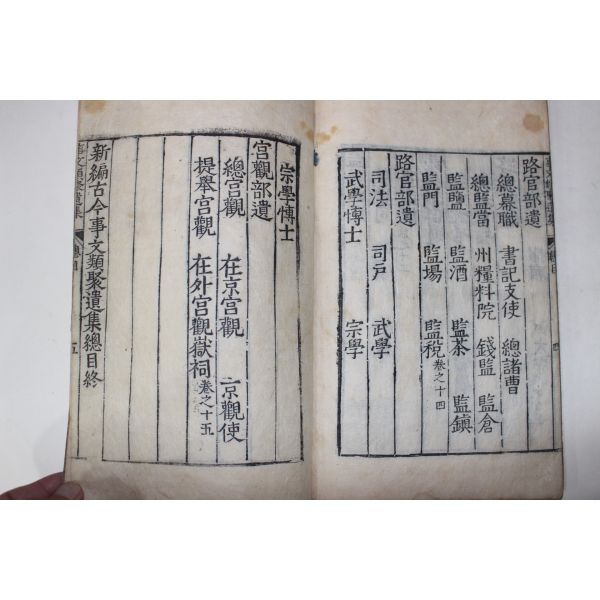 路官部遺
總幕職 書記支使 總諸曹
總監當 州糧料院 錢監 監倉
監鹽 監酒 監茶 監鎮
監門 監場 監稅 卷之十四
路官部遺
司法 司戶 武學
武學博士 宗學
宗學博士
宮觀部遺
總宮觀 在京宮觀 京觀使
提舉宮觀 在外宮觀嶽祠 卷之十五
新編古今事文類聚遺集總目終
事文類聚遺集 總目 五